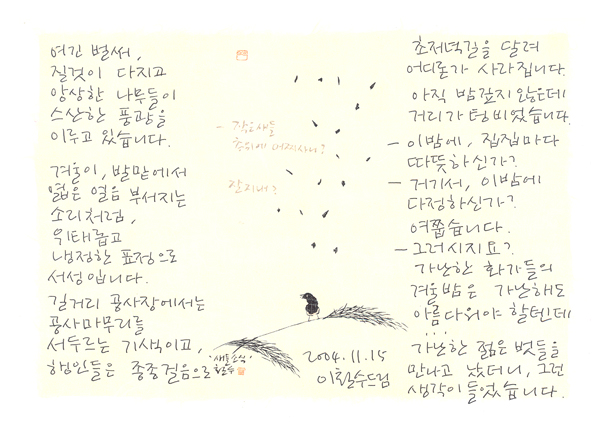 여긴 벌써,
질것이 다지고
앙상한 나무들이
스산한 풍광을
이루고 있습니다.
겨울이, 발맡에서
엷은 얼음 부서지는
소리처럼,
위태롭고
냉정한 표정으로
서성입니다.
길거리 공사장에서는
공사마무리를
서두르는 기색이고,
행인들은 종종걸음으로
- 작은새들
추위에
잘지내?
'새들소식'
2004.11.15
이철수드림
초저녁길을 달려
어디론가 사라집니다.
아직 밤깊지 않은데
거리가 텅비었습니다.
- 이밤에, 집집마다
따뜻하신가?
- 거기서, 이밤에
다정하신가?
여쭙습니다.
- 그러시지요?
가난한 화가들의
겨울밤은 가난해도
아름다워야 할텐데
...
가난한 젊은 벗들을
만나고 났더니, 그런
생각이 들었습니다.